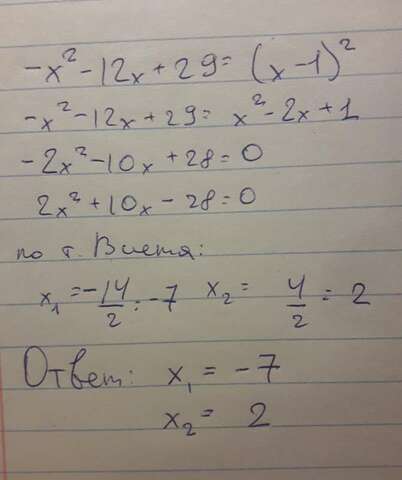 -x² - 12x + 29 = (x - 1)²
-x² - 12x + 29 = x² - 2x + 1
-2x² - 10x + 28 = 0
2x² + 10x - 28 = 0
по т. Виета:
x₁ = -14/2 = -7 x₂ = 4/2 = 2
Ответ: x₁ = -7
x₂ = 2